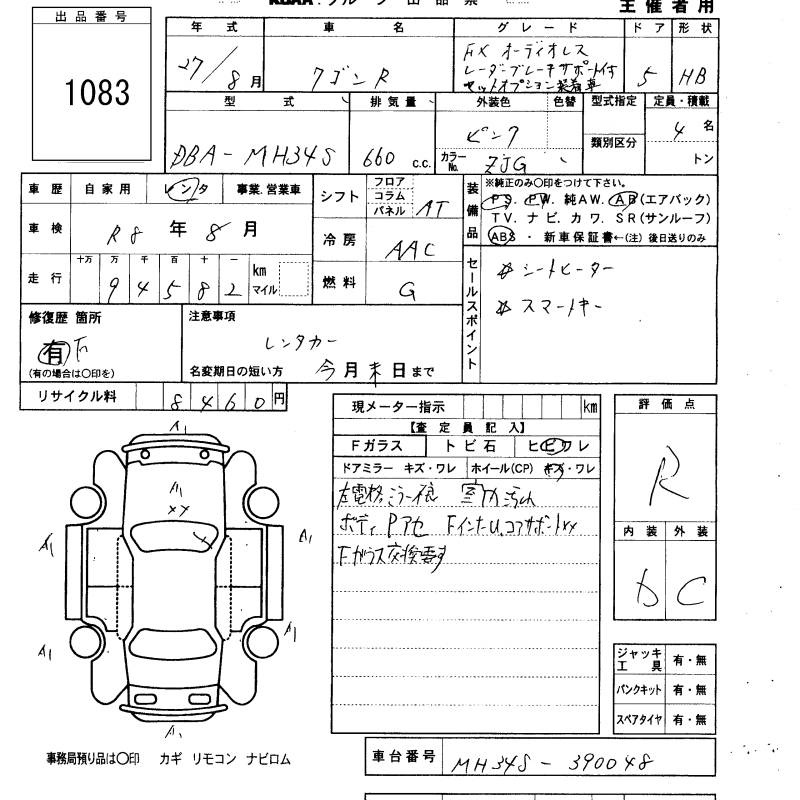 主催者用
出品番号
1083
年式 車名 グレード ドア 形状
27/8月 ワゴンR FX オーディオレス
レーダーブレーキサポート付
セットオプション装着車 5 HB
型式 排気量 外装色 色替 型式指定 定員・積載
DBA-MH34S 660 c.c. ピンク 類別区分 4名
カラーNo. ZJG トン
車歴 自家用 レンタ 事業.営業車
車検 R8年8月
走行 十万 万 千 百 十 一 km マイル
94582
シフト フロア コラム パネル AT
冷房 AAC
燃料 G
装備品 ※純正のみ〇印をつけて下さい。
PS. PW. 純AW. AB(エアバック)
TV. ナビ. カワ. SR(サンルーフ)
ABS・新車保証書←(注)後日送りのみ
セールスポイント
シートヒーター
スマートキー
修復歴 箇所
有
(有の場合は〇印を)
注意事項
レンタカー
名変期日の短い方 今月末日まで
リサイクル料 8460円
現メーター指示 km
【査定員記入】
Fガラス トビ石 ヒビワレ
ドアミラー キズ・ワレ ホイール(CP) キズ・ワレ
左電格ミラー不良 室内汚れ
ボディPアセ
Fガラス交換要す
評価点
R
内装 外装
D C
ジャッキ工具 有・無
パンクキット 有・無
スペアタイヤ 有・無
A1
A1
XX
A1
A1
A1
A1
A1
事務局預り品は〇印 カギ リモコン ナビロム
車台番号 MH34S-390048